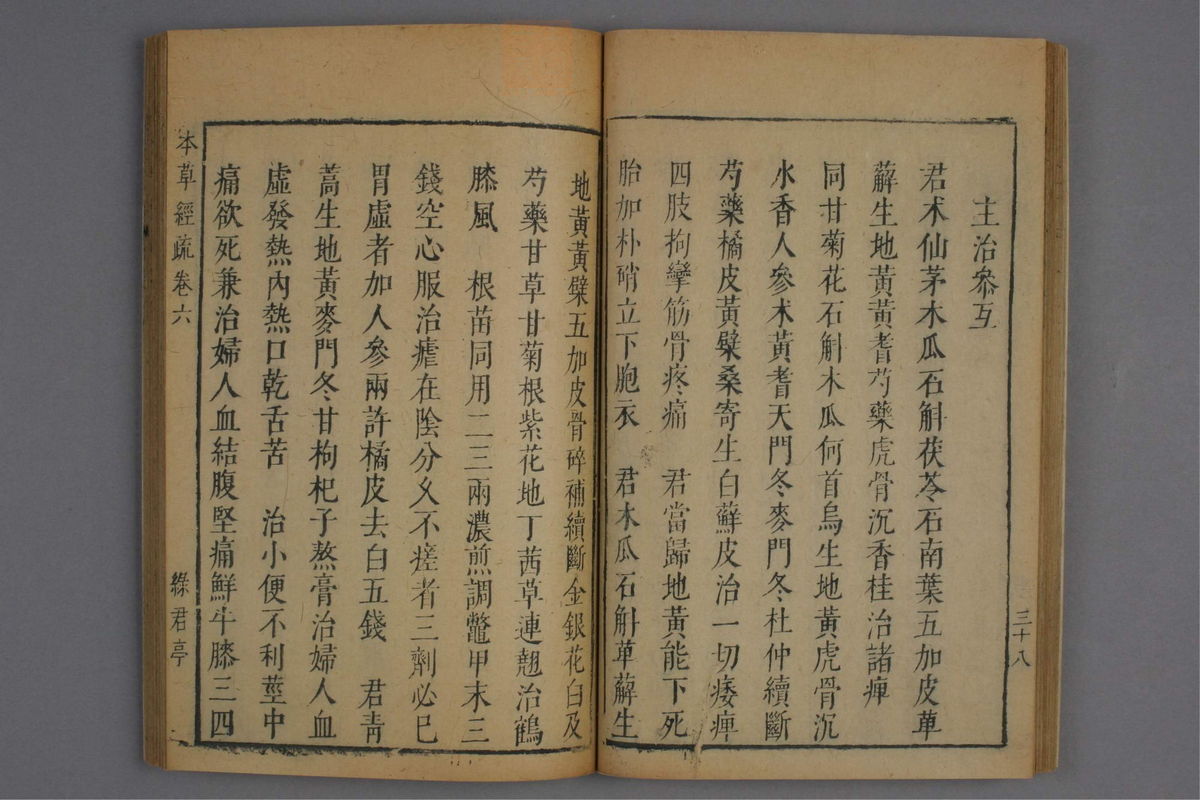 主治參互
君朮仙茅木瓜石斛茯苓石南葉五加皮萆
薢生地黃黃耆芍藥虎骨沉香桂治諸痺
同甘菊花石斛木瓜何首烏生地黃虎骨沉
水香人參朮黃耆天門冬麥門冬杜仲續斷
芍藥橘皮黃檗桑寄生白蘚皮治一切痿痺
四肢拘攣筋骨疼痛　君當歸地黃能下死
胎加朴硝立下胞衣　君木瓜石斛萆薢生
三十八
地黃黃檗五加皮骨碎補續斷金銀花白及
芍藥甘草甘菊根紫花地丁茜草連翹治鶴
膝風　根苗同用二三兩濃煎調鼈甲末三
錢空心服治瘧在陰分久不瘥者三劑必已
胃虛者加人參兩許橘皮去白五錢　君青
蒿生地黃麥門冬甘枸杞子熬膏治婦人血
虛發熱內熱口乾舌苦　治小便不利莖中
痛欲死兼治婦人血結腹堅痛鮮牛膝三四
本草經疏卷六
綠君亭